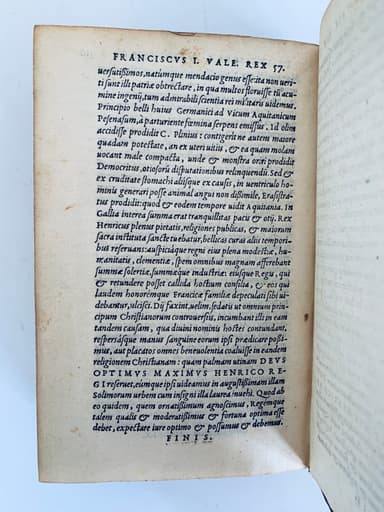 FRANCISCVS I. VALE. REX 57.
uersutißimos, natumque mendacio genus esse: ita non ueri-
ti sunt illi patriæ obtrectare, in qua multos floruisse tũ acu-
mine ingenij, tum admirabili scientia rei militaris uidemus.
Principio belli huius Germanici ad Vicum Aquitanicum
Pesenasum, à parturiente fœmina serpens emissus. Id olim
accidisse prodidit C. Plinius: contigerit ne autem maiore
quadam potestate, an ex uteri uitiis, & ea quam molam
uocant male compacta, unde & monstra oriri prodidit
Democritus, otiosoris disputationibus relinquendũ. Sed &
ex cruditate stomachi aliisque ex causis, in uentriculo ho-
minis generari posse animal angui non dißimile, Erasistra-
tus prodidit: quod & eodem tempore uidit Aquitania. In
Gallia interea summa erat tranquillitas pacis & otij. Rex
Henricus plenus pietatis, religiones publicas, & maiorum
sacra instituta sanctè tuebatur, bellicas curas aliis tempori-
bus reseruans: auspicia´que regni eius plena modestiæ, hu-
manitatis, clementiæ, spem omnibus magnam afferebant
summæ solertiæ, summæque industriæ, eiusque Regis, qui
& retundere posset callida hostium consilia, & eos qui
laudem honoremque Francicæ familiæ depeculati sibi ui-
debantur, ulcisci. Dij faxint, uelim, sedatis ut omnium prin-
cipum Christianorum controuersiis, incumbant illi in eam
tandem causam, qua diuini nominis hostes contundant,
respersasque manus sanguine eorum ipsi prædicare poßi-
mus, aut placatos omnes beneuolentia coaluisse in eandem
religionem Christianam: quam palmam utinam DEVS
OPTIMVS MAXIMVS HENRICO RE-
GI reseruet, eumque ipsi uideamus in augustißimam illam
Solimorum urbem cum insigni illa laurea inuehi. Quod ab
eo quidem, quem ornatißimum agnoscimus, Regemque
talem qualis & moderatißimus & fortuna optima esse
debet, expectare iure optimo & possumus & debemus.
FINIS.